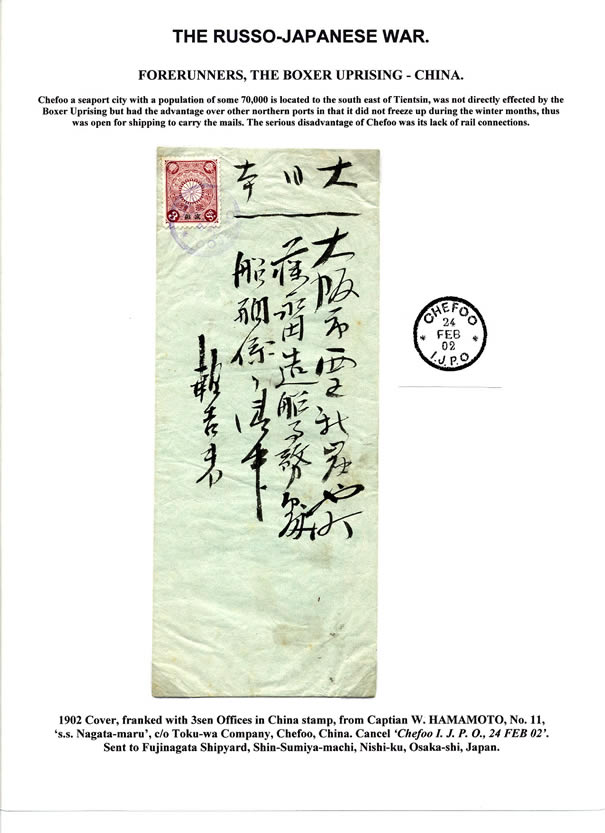 THE RUSSO-JAPANESE WAR.
FORERUNNERS, THE BOXER UPRISING - CHINA.
Chefoo a seaport city with a population of some 70,000 is located to the south east of Tientsin, was not directly effected by the
Boxer Uprising but had the advantage over other northern ports in that it did not freeze up during the winter months, thus
was open for shipping to carry the mails. The serious disadvantage of Chefoo was its lack of rail connections.
大日本
大阪市西区新炭屋町
藤永田造船事務所
船係
CHEFOO
24
FEB
02
I.J.P.O
1902 Cover, franked with 3sen Offices in China stamp, from Captian W. HAMAMOTO, No. 11,
‘s.s. Nagata-maru’, c/o Toku-wa Company, Chefoo, China. Cancel ‘Chefoo I. J. P. O., 24 FEB 02’.
Sent to Fujinagata Shipyard, Shin-Sumiya-machi, Nishi-ku, Osaka-shi, Japan.